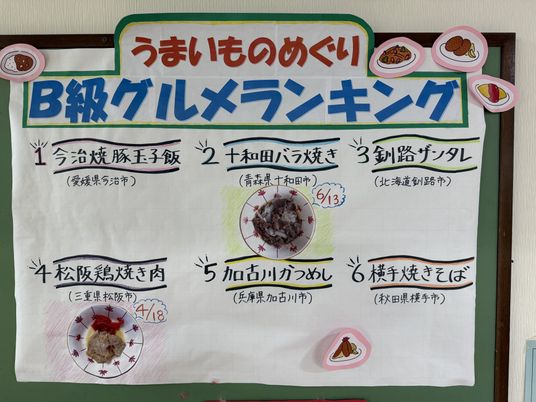 うまいものめぐり
B級グルメランキング
1 今治焼豚玉子飯
(愛媛県今治市)
2 十和田バラ焼き
(青森県十和田市)
6/13
3 釧路ザンタレ
(北海道釧路市)
4 松阪鶏焼き肉
(三重県松阪市)
4/18
5 加古川かつめし
(兵庫県加古川市)
6 横手焼きそば
(秋田県横手市)